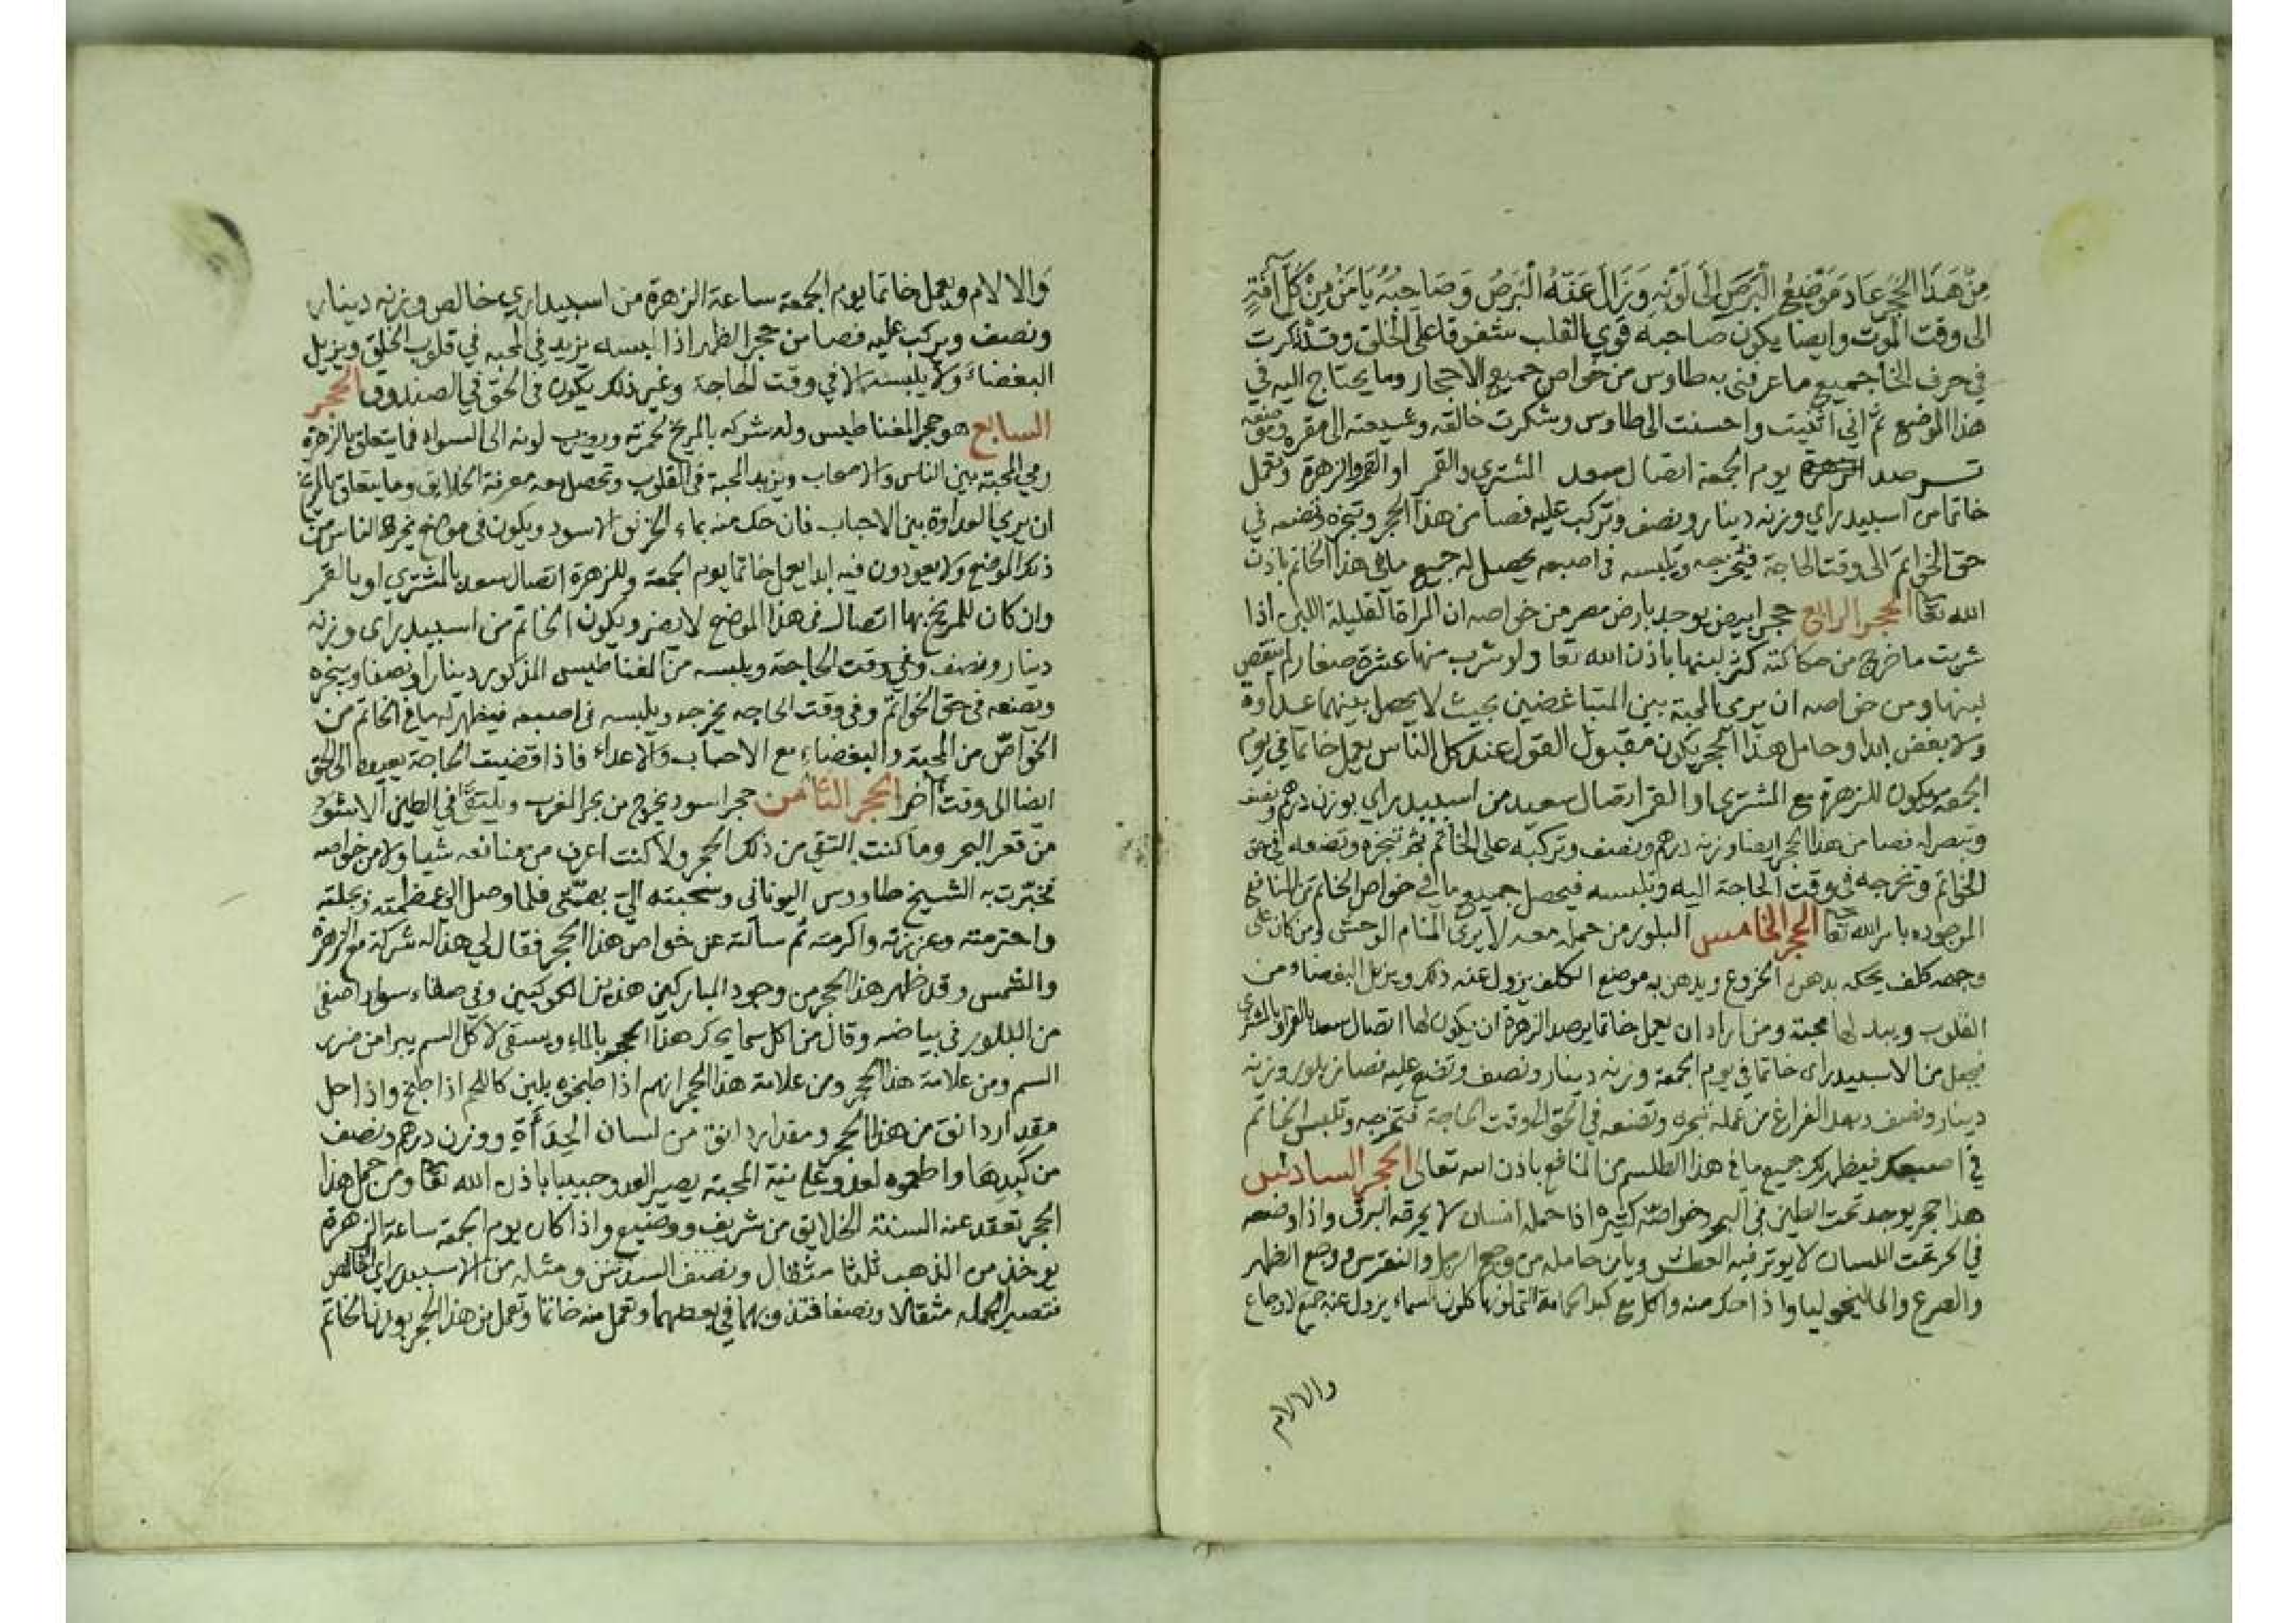 مِنْ هَذَا الحَجَرِ عَادَ مَوْضِعُ الْبَرَصِ إِلَى لَوْنِهِ وَزَالَ عَنْهُ الْبَرَصُ وَصَاحِبُهُ يَأْمَنُ مِنْ كُلِّ آفَةٍ
الى وقت الموت وايضا يكون صاحبه قوي القلب شفوقا على الخلق وقد ذكرت
في حرف الخا جميع ما عرفنى به طاوس من خواص جميع الاحجار وما يحتاج اليه في
هذا الموضع ثم اني اثنيت واحسنت الى طاوس وشكرت خالقه وشيعته الى مقره وصفته
ترصد يوم الجمعة اتصال سعد المشتري والقمر او القمر والزهرة وتعمل
خاتما من اسبيدراي وزنه دينار ونصف وتركب عليه فصا من هذا الحجر وتبخره وتضعه في
حق الخواتم الى وقت الحاجة فتخرجه وتلبسه فى اصبعه يحصل له جميع ما فى هذا الخاتم باذن
الله تعا الحجر الرابع حجر ابيض يوجد بارض مصر من خواصه ان المراة القليلة اللبن اذا
شربت ما خرج من حكاكته كثر لبنها باذن الله تعا ولو شرب منها عشرة صغار لم ينقص
لبنها ومن خواصه ان يرى المحبة بين المتباغضين بحيث لا يحصل بينهما عداوة
ولا بغض ابدا وحامل هذا الحجر يكون مقبول القول عند كل الناس يعمل خاتما في يوم
الجمعة ويكون للزهرة مع المشترى او القمر اتصال سعيد من اسبيدراي بوزن درهم ونصف
فصا من هذا الحجر ايضا وزنه درهم ونصف وتركبه على الخاتم ثم تبخره وتضعه في حق
الخواتم وتخرجه فى وقت الحاجة اليه وتلبسه فيحصل جميع ما في خواص الخاتم من المنافع
الموجوده بامر الله تعا الحجر الخامس البلور من حمله معه لا يرى المنام الوحش ومن كان على
وجهه كلف يحكه بدهن الخروع ويدهن به موضع الكلف يزول عنه ذلك ويزيل البغضاء من
القلوب ويبدلها محبة ومن اراد ان يعمل خاتما يرصد الزهرة ان يكون لها اتصال سعد بالقمر او بالمشترى
فيجعل من الاسبيدراى خاتما في يوم الجمعة وزنه دينار ونصف وتضع عليه فصا من بلور وزنه
دينار ونصف وبعد الفراغ من عمله تبخره وتضعه في الحق الى وقت الحاجة فتخرجه وتلبس الخاتم
في اصبعك فيظهر لك جميع ما في هذا الطلسم من المنافع باذن الله تعالى الحجر السادس
هذا حجر يوجد تحت الطين فى البحر وخواصه كثيره اذا حمله انسان لا يحرقه البرق واذا وضعه
في الحر تحت اللسان لا يوثر فيه العطش ويامن حامله من وجع الرمل والنقرس ووجع الظهر
والصرع والماليخوليا واذا حك منه واكل مع كبد الحمامة التى لونها كلون السماء يزول عنه جميع الاوجاع
والالام
وَالالام ويعمل خاتما يوم الجمعة ساعة الزهرة من اسبيدراي خالص وزنه دينار
ونصف ويركب عليه فصا من حجر الظهر اذا لبسه يزيد فى المحبه في قلوب الخلق ويزيل
البغضاء ولا يلبسه الا في وقت الحاجة وغير ذلك يكون فى الحق في الصندوق الحجر
السابع هو حجر المغناطيس وله شركه بالمريخ لحمرته لونه الى السواد فما يتعلق بالزهرة
رمي المحبة بين الناس والاصحاب ويزيد المحبة فى القلوب وتحصل معه معرفة الخلايق وما يتعلق بالمريخ
ان يرمي العداوة بين الاحباب فان حك منه بماء الخرنق الاسود ويكون فى موضع يخرج الناس من
ذلك الموضع ولا يعودون فيه ابدا يعمل خاتما يوم الجمعة وللزهرة اتصال سعد بالمشتري او بالقمر
وان كان للمريخ بها اتصال فى هذا الموضع لا يضر ويكون الخاتم من اسبيدراى وزنه
دينار ونصف وفي وقت الحاجة ويلبسه من المغناطيس المذكور دينارا ونصفا ويبخره
ويضعه فى حق الخواتم وفى وقت الحاجه يخرجه ويلبسه فى اصبعه فيظهر له ما في الخاتم من
الخواصّ من المحبة والبغضاء مع الاحباب والاعداء فاذا قضيت الحاجة يعيده الى الحق
ايضا الى وقت آخر الحجر الثامن حجر اسود يخرج من بحر المغرب ويلتقا في الطين الاسود
من قعر البحر وما كنت التقي من ذلك الحجر ولا كنت اعرف من منافعه شيا ولا من خواصه
فخبّرت به الشيخ طاودس اليونانى وسحبته اليّ بهمتى فلما وصل الى عظمته وبجلته
واحترمته وعززته واكرمته ثم سالته عن خواص هذا الحجر فقال لي هذا له شركة مع الزهرة
والشمس وقد ظهر هذا الحجر من وجود المباركين هذين الكوكبين وفي صفاء سواده اصفى
من البللور فى بياضه وقال من اكل سما يحك هذا الحجر بالماء ويسقى لاكل السم يبرا من ضرر
السم ومن علامة هذا الحجر ومن علامة هذا الحجر انهم اذا طبخوه يلين كاللحم اذا طبخ واذا حل
مقدار دانق من هذا الحجر ومقدار دانق من لسان الحِدَأَة ووزن درهم ونصف
من كبدها واطعموه لعدو على نية المحبة يصير العدو حبيبا باذن الله تعا ومن حمل هذا
الحجر تعقد عنه السنة الخلايق من شريف ووضيع واذا كان يوم الجمعة ساعة الزهرة
يوخذ من الذهب ثلثا مثقال ونصف السدس ومثله من الاسبيدراي الخالص
فتصير الجمله مثقالا ونصفا فتذوبهما في بعضهما وتعمل منه خاتما وتعمل من هذا الحجر بوزن الخاتم